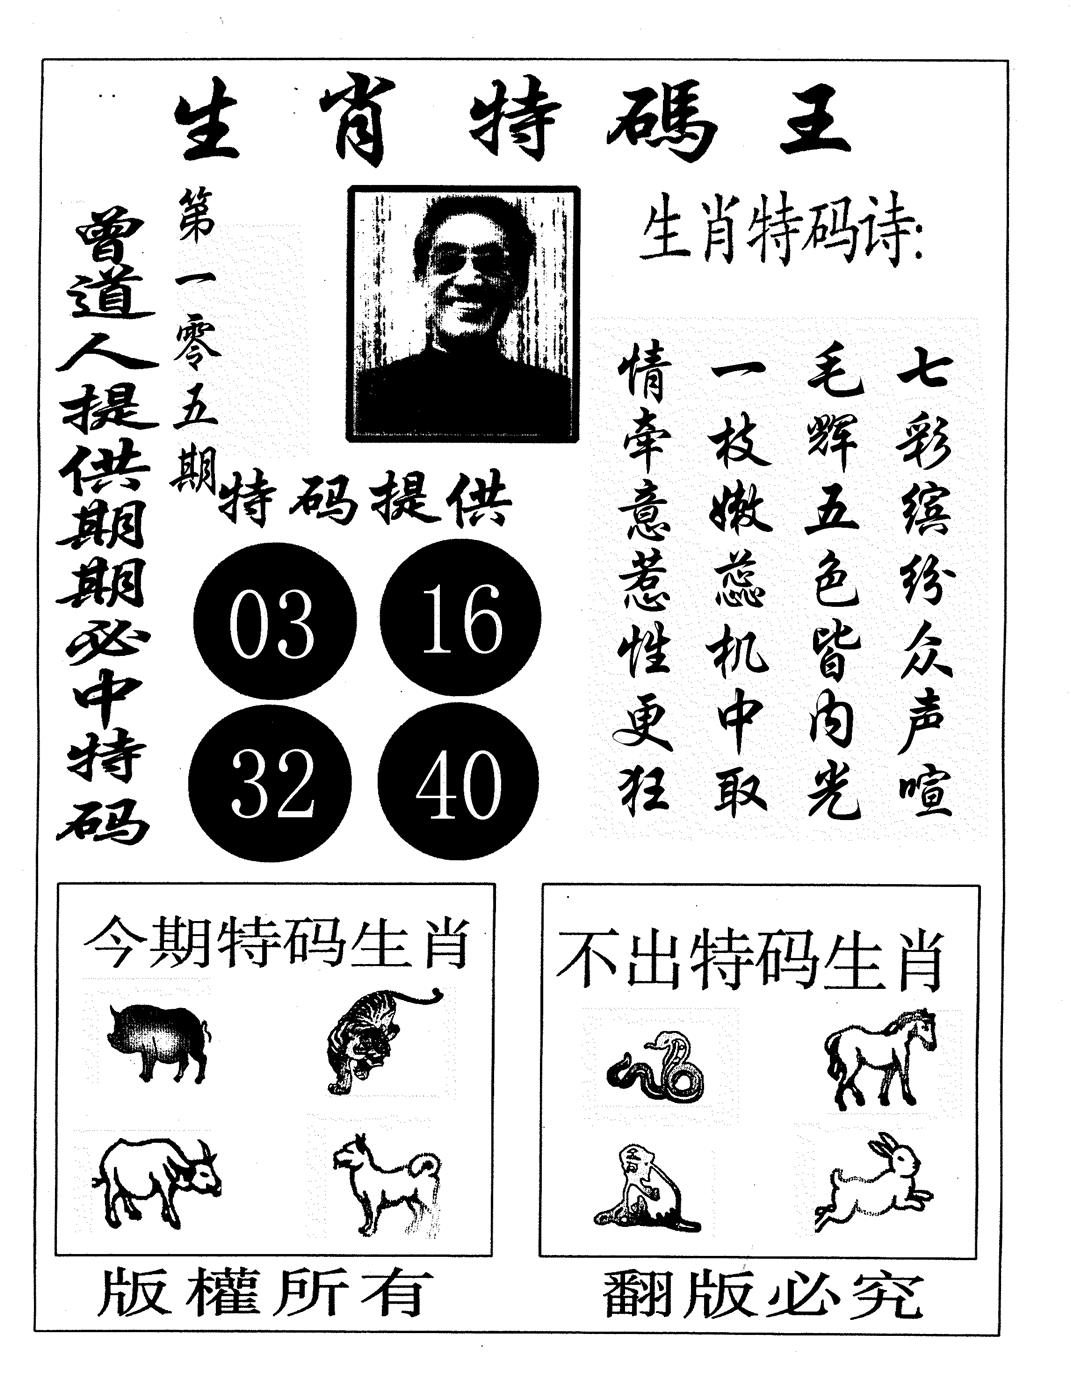 生肖特碼王
曾道人提供期期必中特码
第一零五期
特码提供
03 16
32 40
生肖特码诗:
七彩缤纷众声喧
毛辉五色皆内光
一枝嫩蕊机中取
情牵意惹性更狂
今期特码生肖
不出特码生肖
版權所有
翻版必究